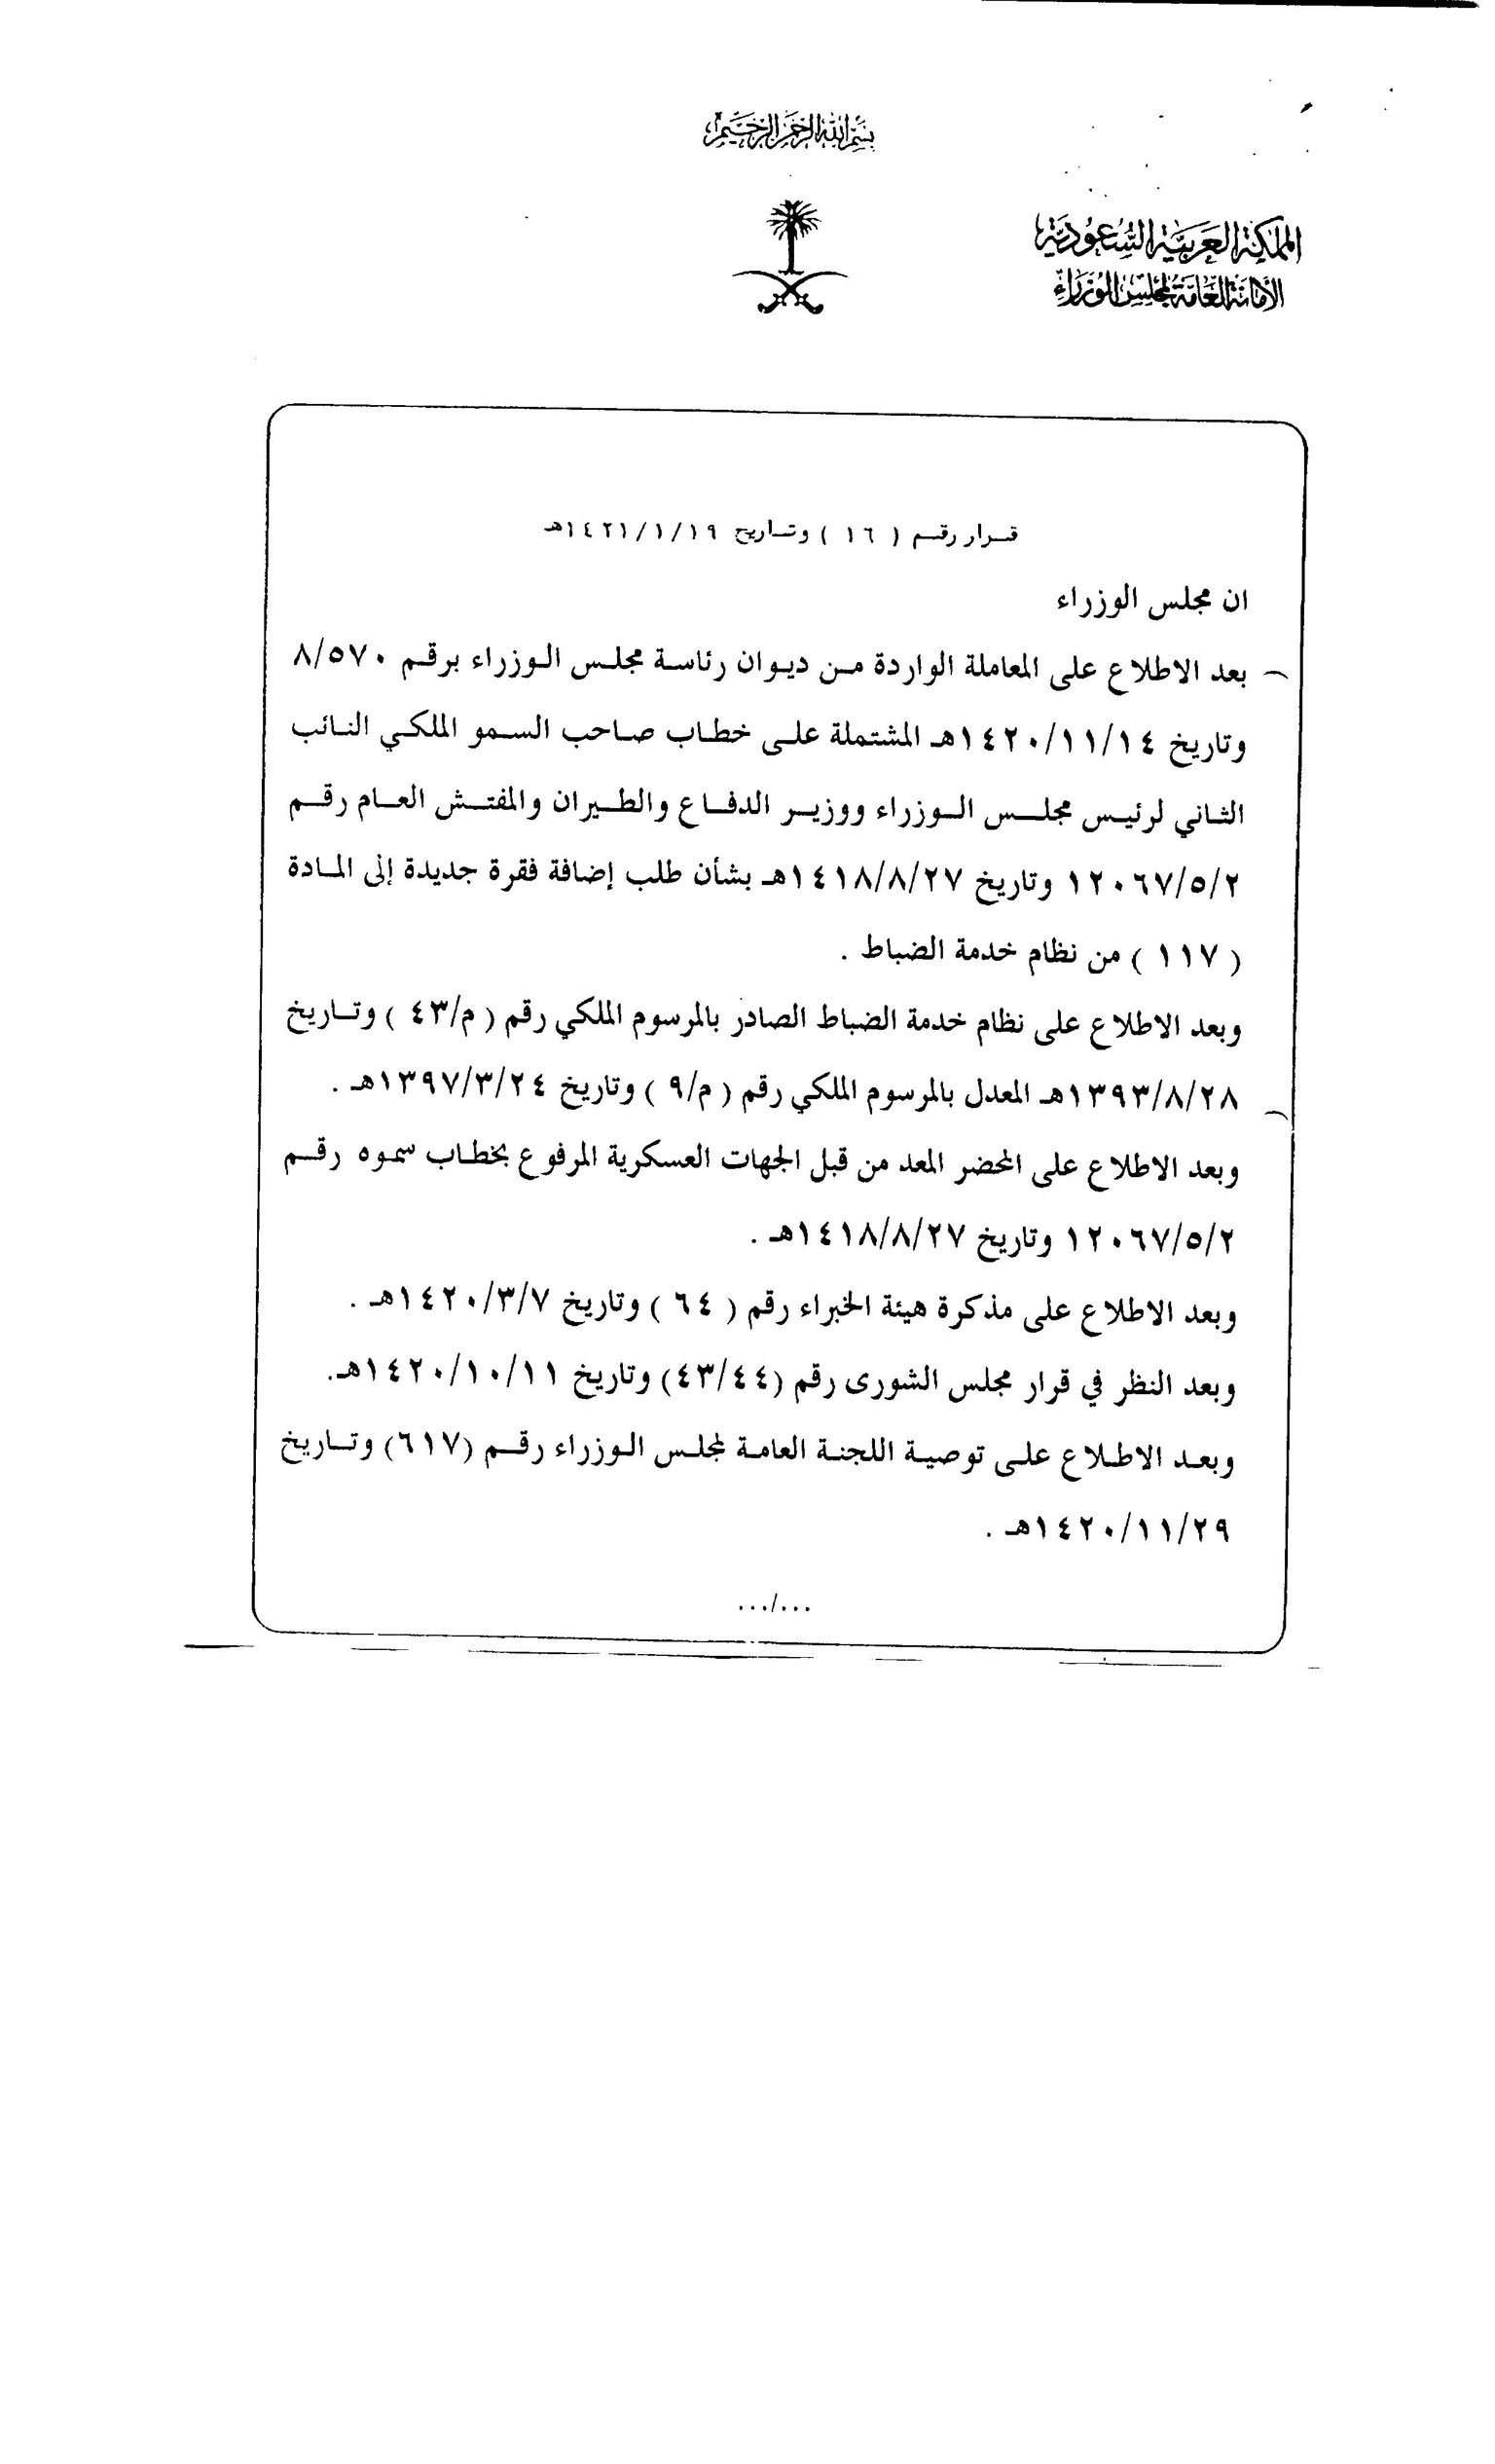 بسم الله الرحمن الرحيم
المملكة العربية السعودية
الأمانة العامة لمجلس الوزراء
قـرار رقـم ( ١٦ ) وتـاريخ ١٤٢١/١/١٩هـ
ان مجلس الوزراء
بعد الاطلاع على المعاملة الواردة من ديوان رئاسة مجلس الوزراء برقم ٨/٥٧٠
وتاريخ ١٤٢٠/١١/١٤هـ المشتملة على خطاب صاحب السمو الملكي النائب
الثاني لرئيس مجلس الوزراء ووزير الدفاع والطيران والمفتش العام رقم
١٢٠٦٧/٥/٢ وتاريخ ١٤١٨/٨/٢٧هـ بشأن طلب إضافة فقرة جديدة إلى المادة
( ١١٧ ) من نظام خدمة الضباط .
وبعد الاطلاع على نظام خدمة الضباط الصادر بالمرسوم الملكي رقم ( م/٤٣ ) وتاريخ
١٣٩٣/٨/٢٨هـ المعدل بالمرسوم الملكي رقم ( م/٩ ) وتاريخ ١٣٩٧/٣/٢٤هـ .
وبعد الاطلاع على المحضر المعد من قبل الجهات العسكرية المرفوع بخطاب سموه رقم
١٢٠٦٧/٥/٢ وتاريخ ١٤١٨/٨/٢٧هـ .
وبعد الاطلاع على مذكرة هيئة الخبراء رقم ( ٦٤ ) وتاريخ ١٤٢٠/٣/٧هـ .
وبعد النظر في قرار مجلس الشورى رقم (٤٣/٤٤) وتاريخ ١٤٢٠/١٠/١١هـ.
وبعد الاطلاع على توصية اللجنة العامة لمجلس الوزراء رقم (٦١٧) وتاريخ
١٤٢٠/١١/٢٩هـ .
.../...